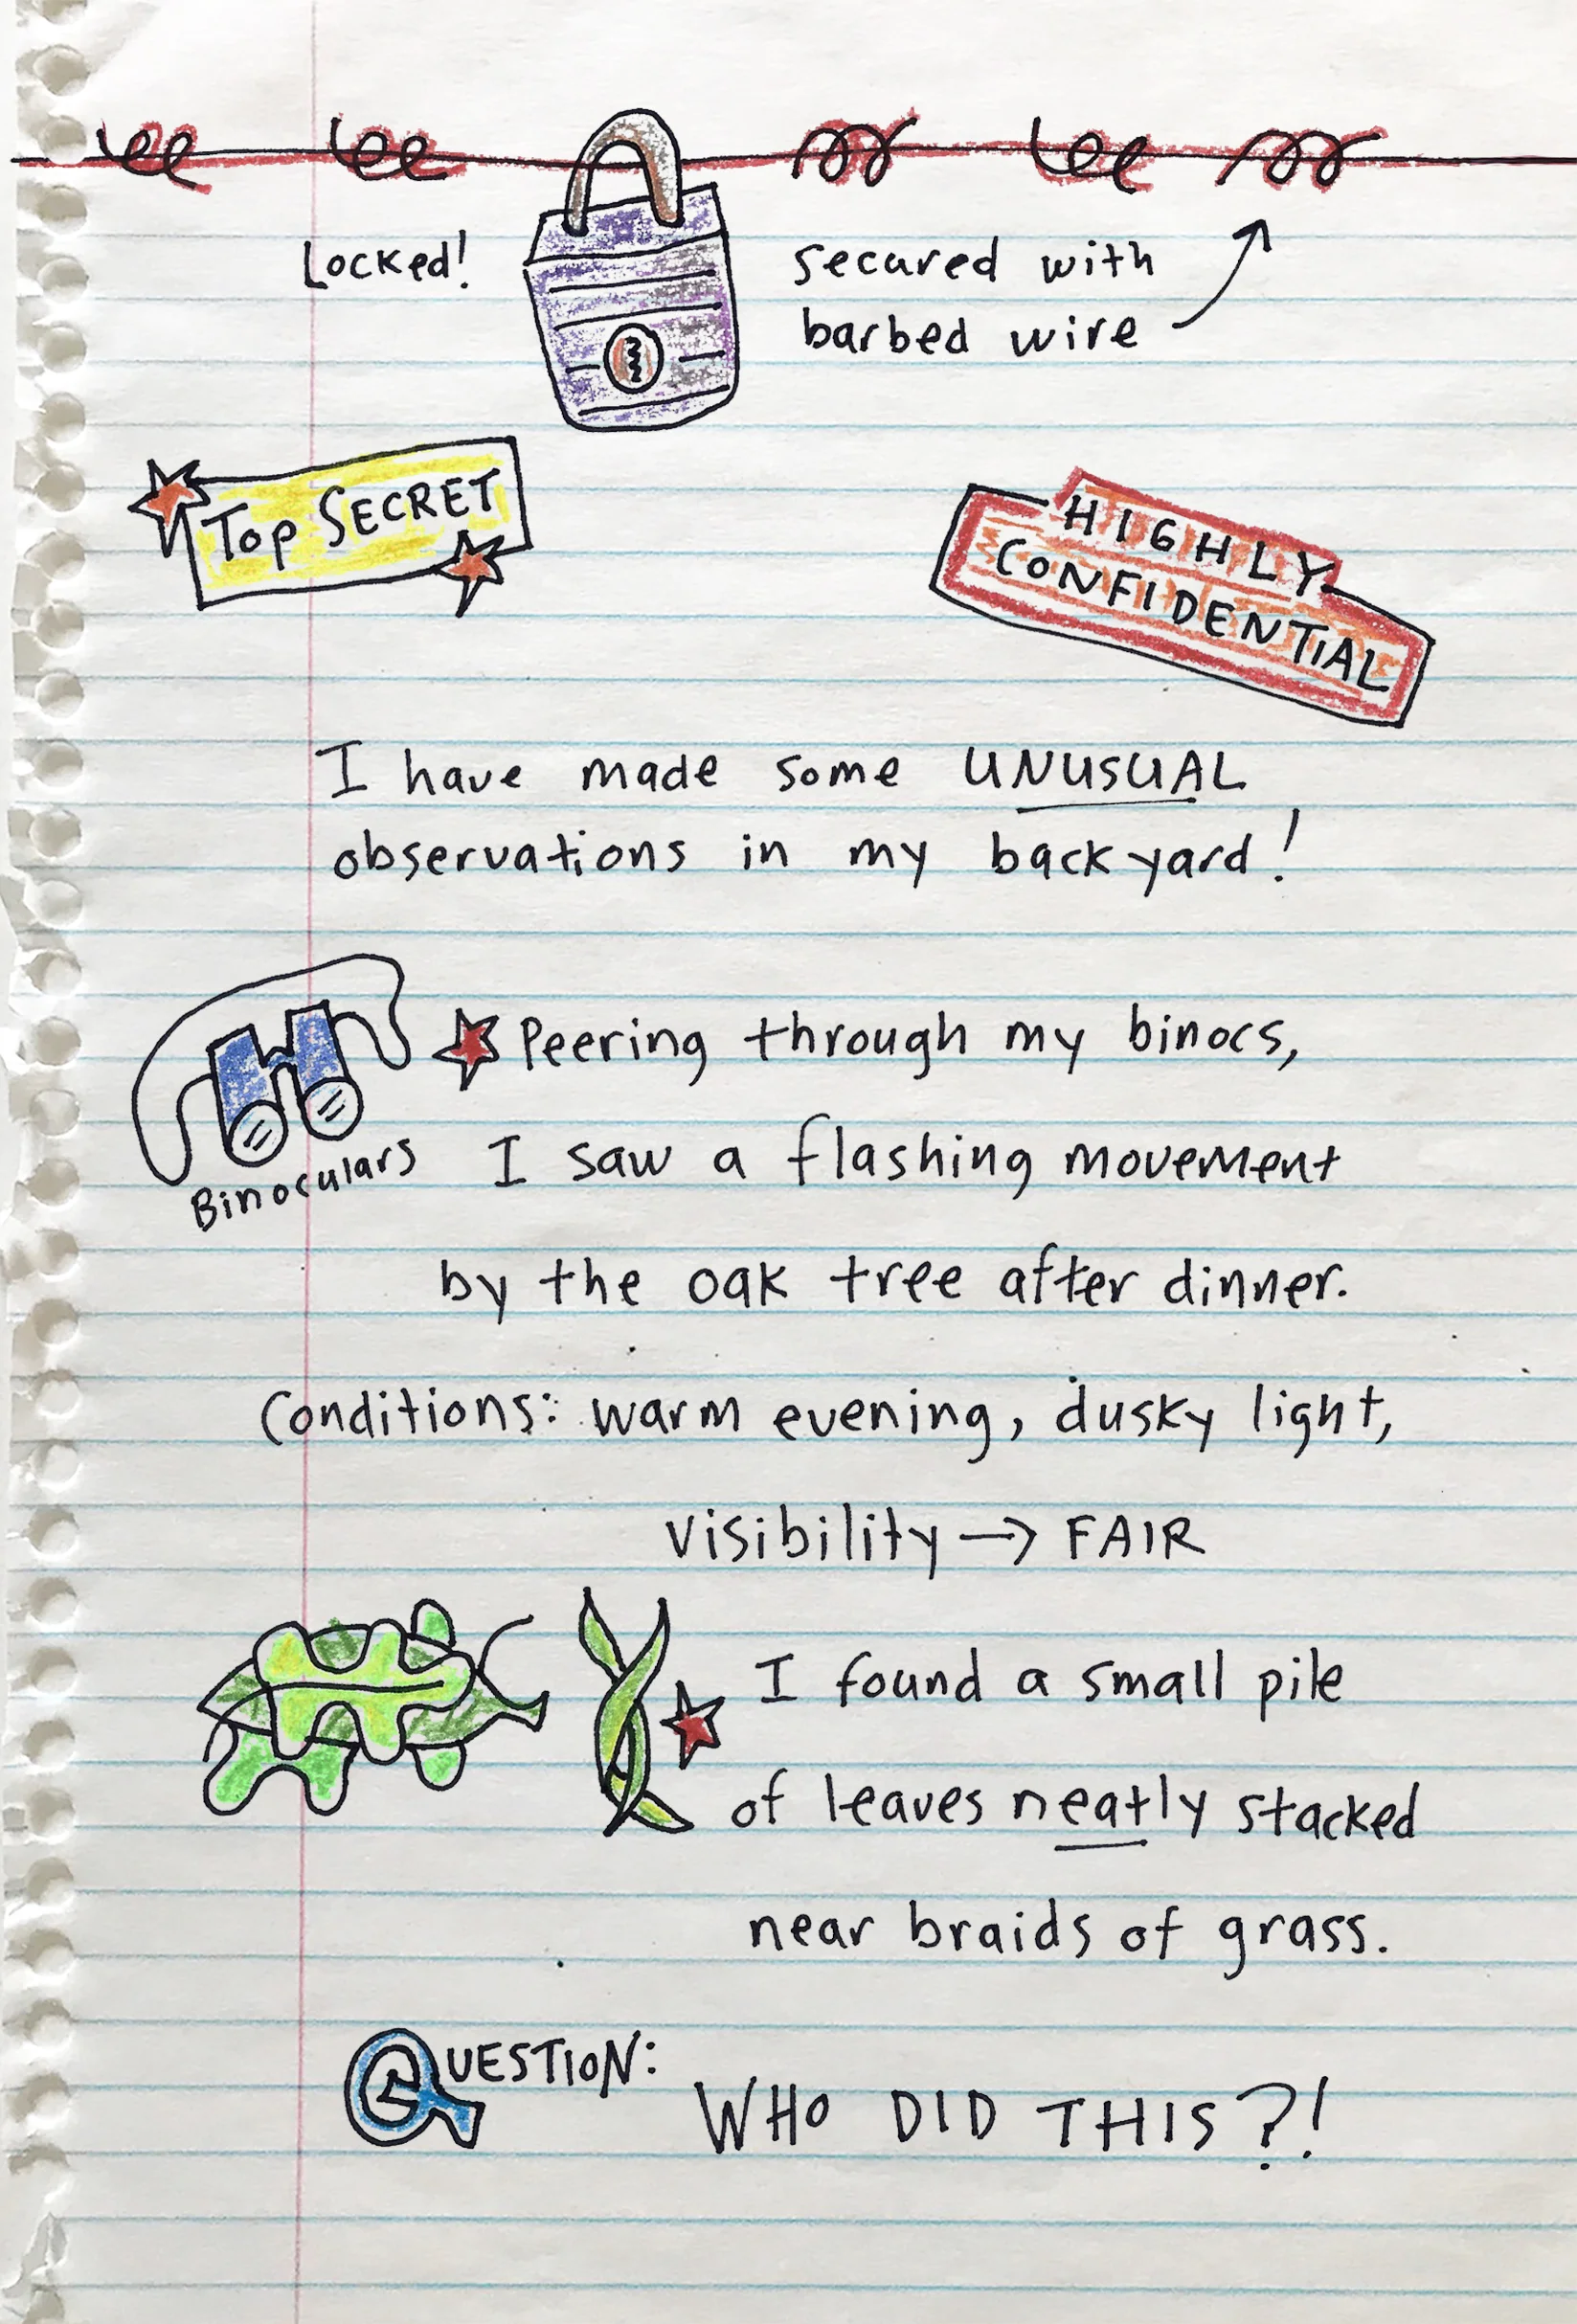 Locked!
secured with
barbed wire
TOP SECRET
HIGHLY
CONFIDENTIAL
I have made some UNUSUAL
observations in my backyard!
Peering through my binocs,
Binoculars
I saw a flashing movement
by the oak tree after dinner.
Conditions: warm evening, dusky light,
visibility → FAIR
I found a small pile
of leaves neatly stacked
near braids of grass.
QUESTION:
WHO DID THIS?!